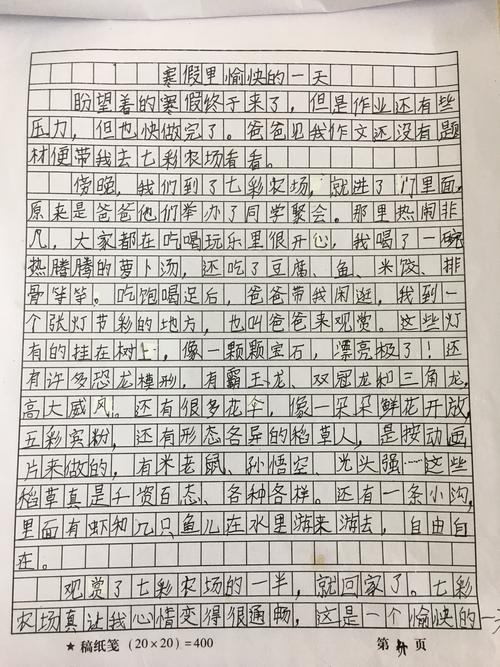 寒假里愉快的一天
盼望着的寒假终于来了，但是作业还有些
压力，但也快做完了。爸爸见我作文还没有题
材便带我去七彩农场看看。
傍晚，我们到了七彩农场，就进了门里面，
原来是爸爸他们举办了同学聚会。那里热闹非
凡，大家都在吃喝玩乐里很开心，我喝了一碗
热腾腾的萝卜汤，还吃了豆腐、鱼、米饺、排
骨等等。吃饱喝足后，爸爸带我闲逛，我到一
个张灯节彩的地方，也叫爸爸来观赏。这些灯
有的挂在树上，像一颗颗宝石，漂亮极了！还
有许多恐龙模形，有霸王龙、双冠龙和三角龙，
高大威风。还有很多花伞，像一朵朵鲜花开放，
五彩宾粉，还有形态各异的稻草人，是按动画
片来做的，有米老鼠、孙悟空、光头强……这些
稻草真是千资百态、各种各样。还有一条小沟，
里面有虾和几只鱼儿在水里游来游去，自由自
在。
观赏了七彩农场的一半，就回家了。七彩
农场真让我心情变得很通畅，这是一个愉快的一天
★稿纸笺（20×20）=400 第 页